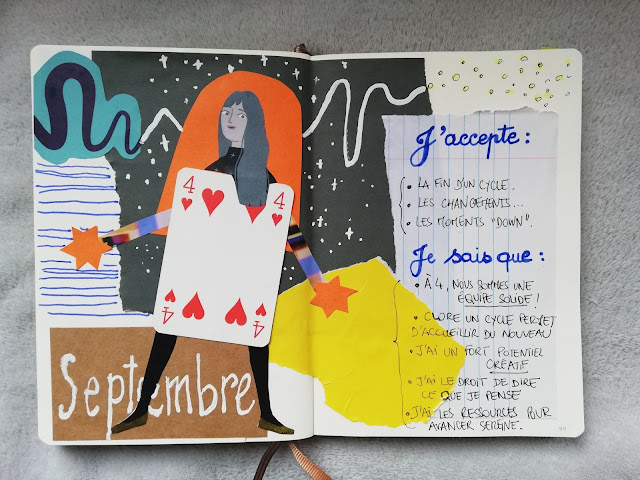 4
4
4
4
Septembre
J'accepte :
• LA FIN D'UN CYCLE.
• LES CHANGEMENTS...
• LES MOMENTS "DOWN"
Je sais que :
• À 4, NOUS SOMMES UNE
ÉQUIPE SOLIDE !
• CLORE UN CYCLE PERMET
D'ACCUEILLIR DU NOUVEAU
• J'AI UN FORT POTENTIEL
CRÉATIF
• J'AI LE DROIT DE DIRE
CE QUE JE PENSE
• J'AI LES RESSOURCES POUR
AVANCER SEREINE.